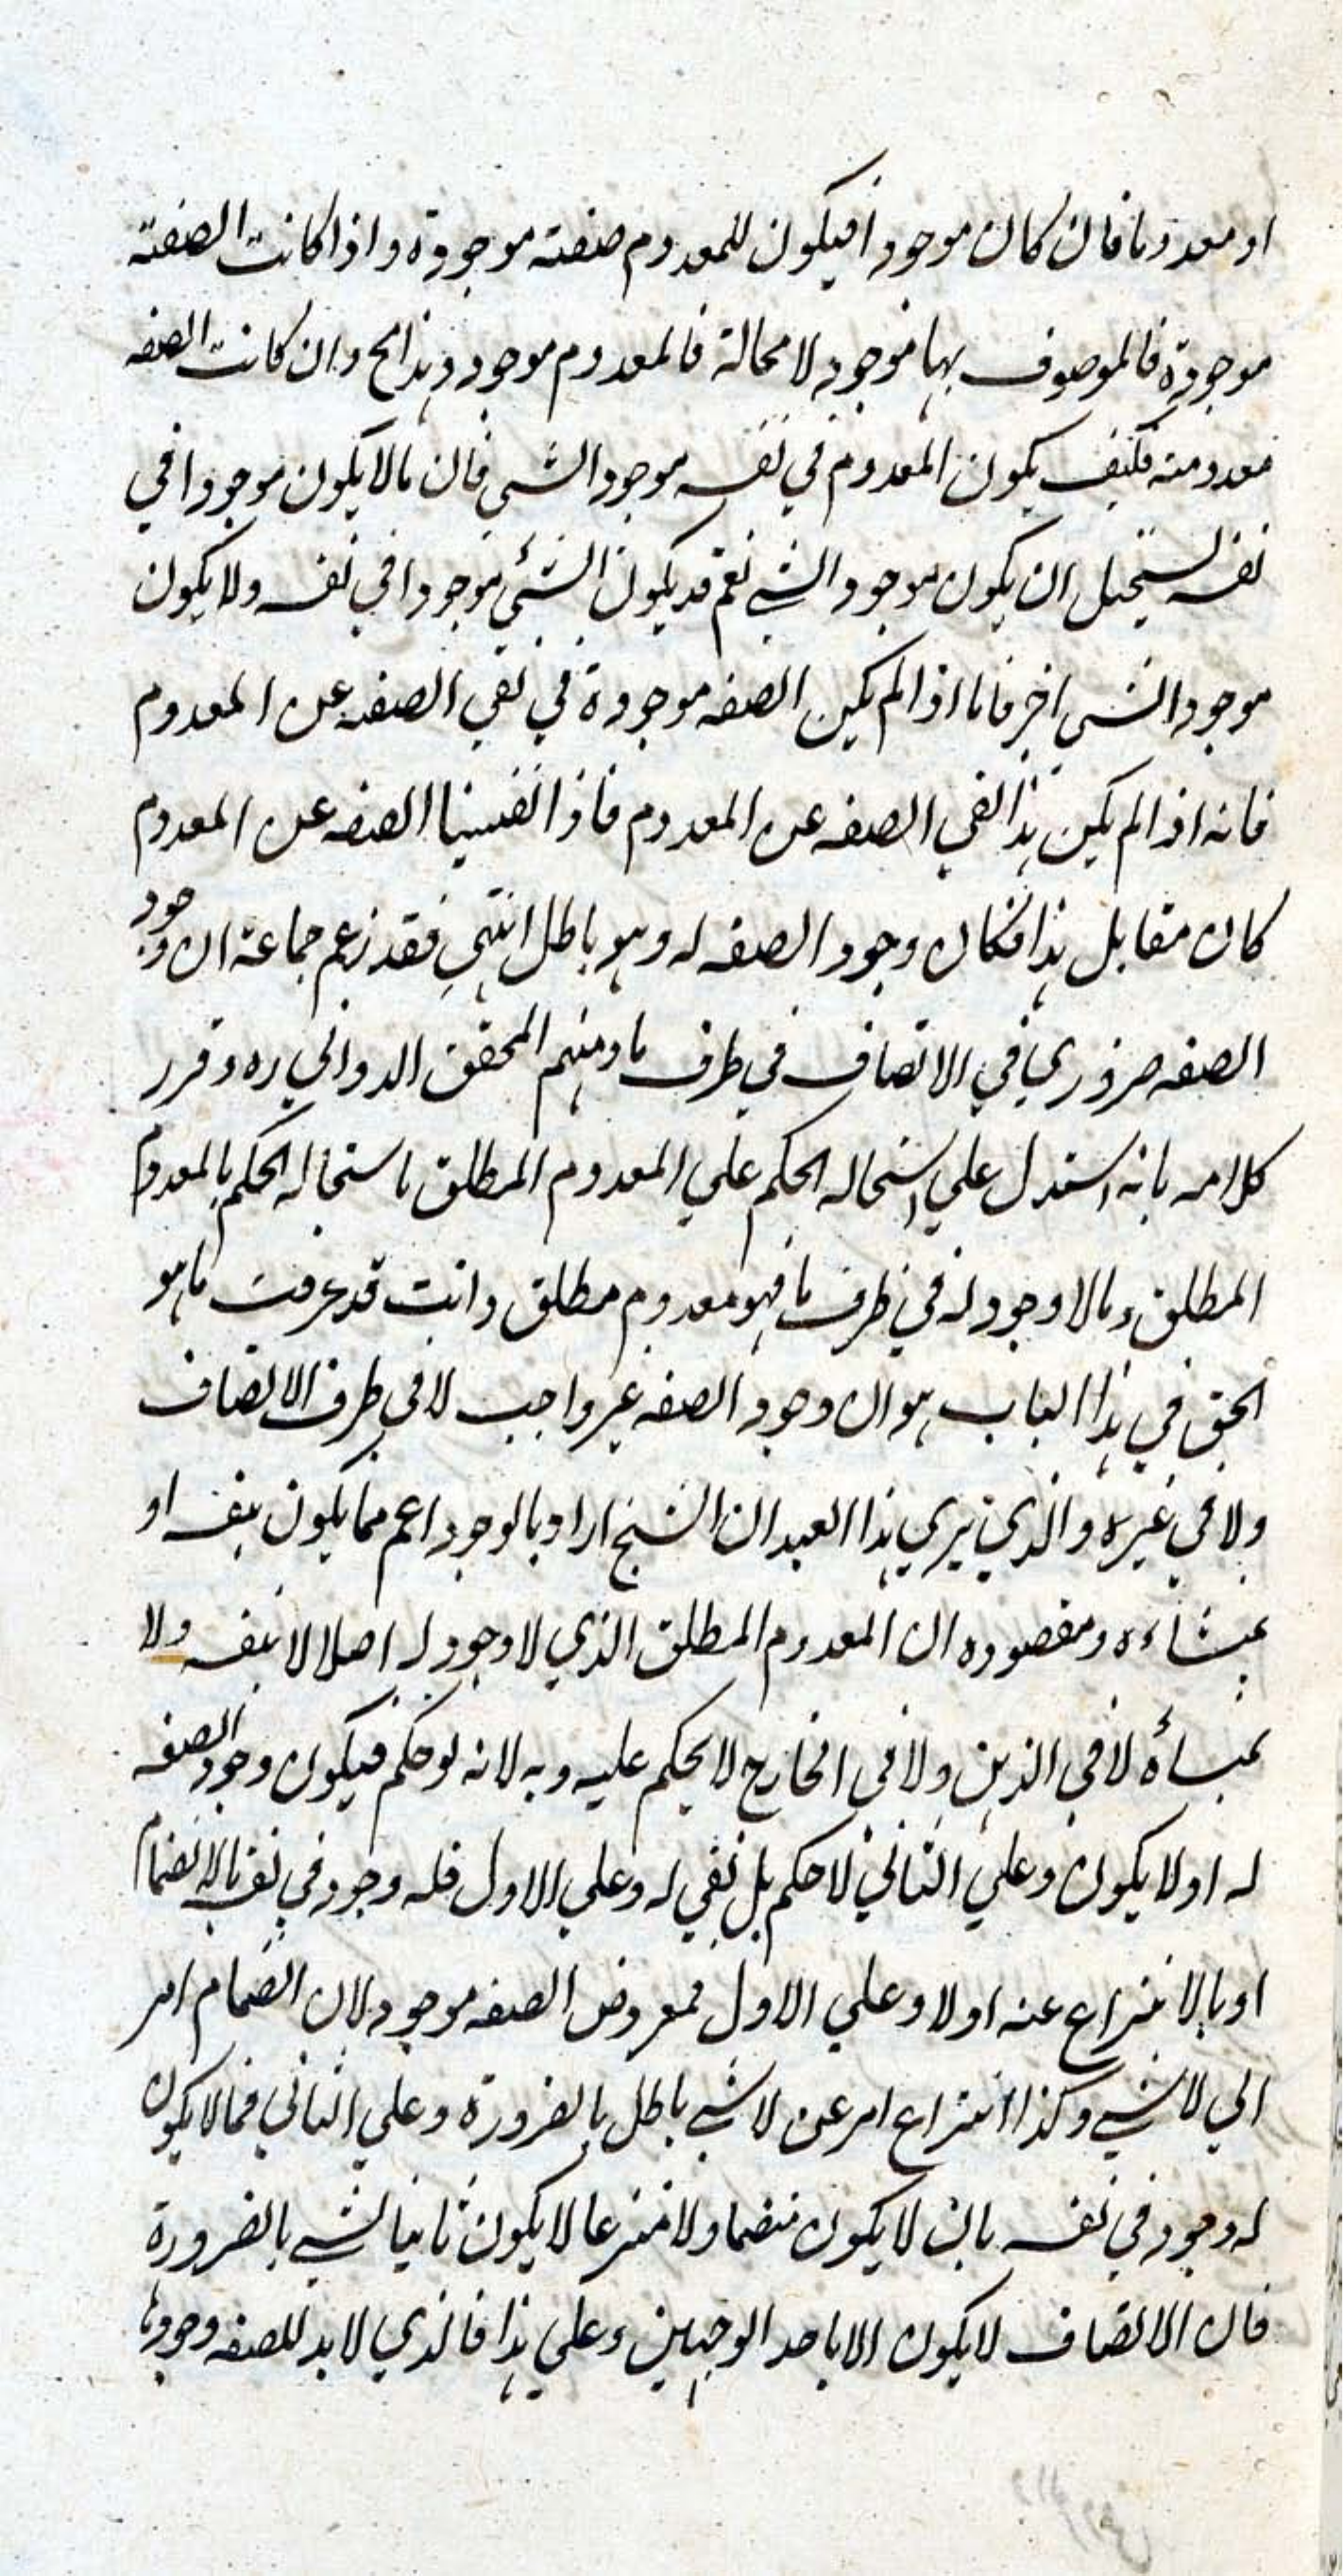 او معدوما فان كان موجودا فيكون للمعدوم صفته موجودة واذا كانت الصفته
موجودة فالموصوف بها موجود لا محالة فالمعدوم موجود وهذا مح وان كانت الصفه
معدومته فكيف يكون المعدوم في نفسه موجودا لشي فان مالا يكون موجودا في
نفسه يستحيل ان يكون موجودا لشي نعم قد يكون الشئ موجودا في نفسه ولا يكون
موجودا لشي اخر فاما اذا لم يكن الصفه موجودة في نفي الصفه عن المعدوم
فانه اذا لم يكن هذا نفي الصفه عن المعدوم فاذا نفينا الصفه عن المعدوم
كان مقابل هذا فكان وجود الصفه له وهو باطل انتهي فقد زعم جماعة ان وجود
الصفه ضروري في الاتصاف في ظرف ما ومنهم المحقق الدواني ره وقرر
كلامه بانه استدل علي استحاله الحكم علي المعدوم المطلق باستحاله الحكم بالمعدوم
المطلق ومالا وجود له في ظرف ما فهو معدوم مطلق وانت قد عرفت ما هو
الحق في هذا الباب هو ان وجود الصفه غير واجب لا في ظرف الاتصاف
ولا في غيره والذي يري هذا العبد ان الشيخ اراد بالوجود اعم مما يكون بنفسه او
بمنشاءه ومقصوده ان المعدوم المطلق الذي لا وجود له اصلا لا بنفسه ولا
بمنشأه لا في الذهن ولا في الخارج لا يحكم عليه وبه لانه لو حكم فيكون وجود الصفه
له او لا يكون وعلي الثاني لا حكم بل نفي له وعلي الاول فله وجود في نفسه بالانضمام
او بالانتزاع عنه اولا وعلي الاول فمعروض الصفه موجود لان انضمام امر
الي لا شي وكذا انتزاع امر عن لا شي باطل بالضرورة وعلي الثاني فما لا يكون
له وجود في نفسه بان لا يكون منضما ولا منتزعا لا يكون ثابتا لشي بالضرورة
فان الاتصاف لا يكون الا باحد الوجهين وعلي هذا فالذي لا بد للصفه وجودها